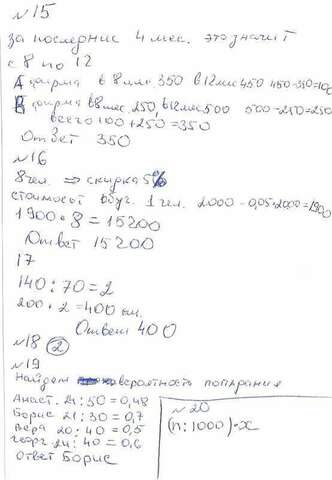 №15
за последние 4 мес. это значит
с 8 по 12
А фирма в 8 мес 350 в 12 мес 450 450-350=100
В фирма в 8 мес. 250, в 12 мес 500 500-250=250
всего 100+250=350
Ответ 350
№16
8 чел. ⇒ скидка 5%
стоимост обуч. 1 чел. 2000-0,05*2000=1900
1900*8=15200
Ответ 15200
17
140:70=2
200*2=400 км.
Ответ 400
№18 2
№19
Найдем вероятность попадания
Анаст. 24:50=0,48
Борис 21:30=0,7
Вера 20:40=0,5
Георг. 24:40=0,6
ответ Борис
№20
(n:1000)*x